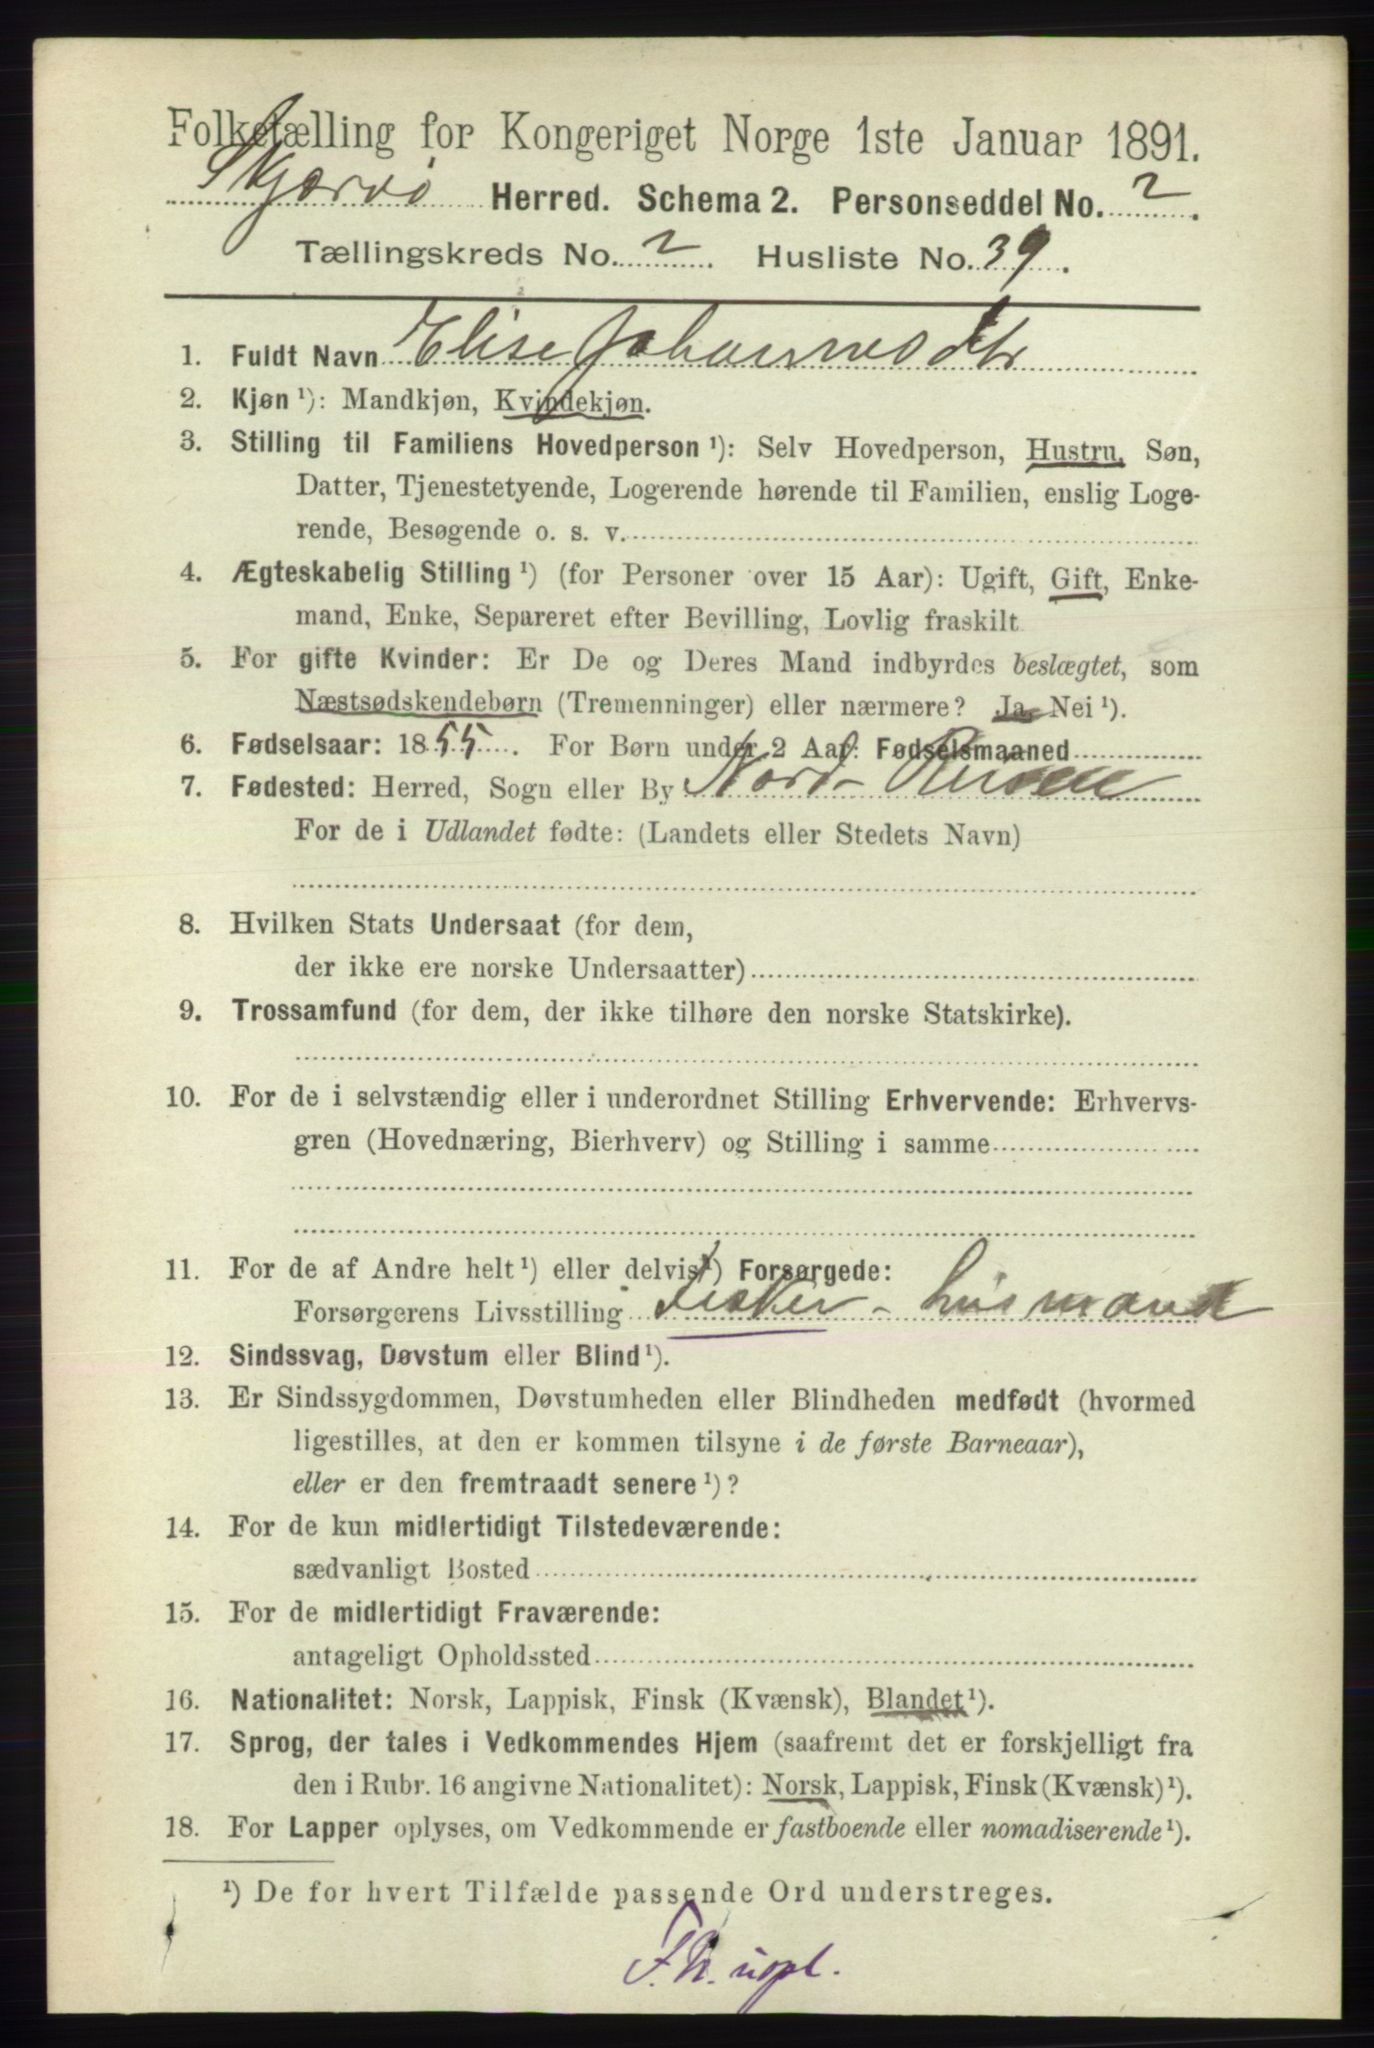 Folketælling for Kongeriget Norge 1ste Januar 1891.
Skjervø Herred. Schema 2. Personseddel No. 2.
Tællingskreds No. 2. Husliste No. 39.
1. Fuldt Navn Elise Johannesdtr
2. Kjøn ¹): Mandkjøn, Kvindekjøn.
3. Stilling til Familiens Hovedperson ¹): Selv Hovedperson, Hustru, Søn,
Datter, Tjenestetyende, Logerende hørende til Familien, enslig Loge-
rende, Besøgende o. s. v.
4. Ægteskabelig Stilling ¹) (for Personer over 15 Aar): Ugift, Gift, Enke-
mand, Enke, Separeret efter Bevilling, Lovlig fraskilt
5. For gifte Kvinder: Er De og Deres Mand indbyrdes beslægtet, som
Næstsødskendebørn (Tremenninger) eller nærmere? Ja, Nei ¹).
6. Fødselsaar: 1855. For Børn under 2 Aar: Fødselsmaaned
7. Fødested: Herred, Sogn eller By Nord-Reisen
For de i Udlandet fødte: (Landets eller Stedets Navn)
8. Hvilken Stats Undersaat (for dem,
der ikke ere norske Undersaatter)
9. Trossamfund (for dem, der ikke tilhøre den norske Statskirke).
10. For de i selvstændig eller i underordnet Stilling Erhvervende: Erhvervs-
gren (Hovednæring, Bierhverv) og Stilling i samme
11. For de af Andre helt ¹) eller delvist ¹) Forsørgede:
Forsørgerens Livsstilling Fisker - husmand
12. Sindssvag, Døvstum eller Blind ¹).
13. Er Sindssygdommen, Døvstumheden eller Blindheden medfødt (hvormed
ligestilles, at den er kommen tilsyne i de første Barneaar),
eller er den fremtraadt senere ¹)?
14. For de kun midlertidigt Tilstedeværende:
sædvanligt Bosted
15. For de midlertidigt Fraværende:
antageligt Opholdssted
16. Nationalitet: Norsk, Lappisk, Finsk (Kvænsk), Blandet ¹).
17. Sprog, der tales i Vedkommendes Hjem (saafremt det er forskjelligt fra
den i Rubr. 16 angivne Nationalitet): Norsk, Lappisk, Finsk (Kvænsk) ¹).
18. For Lapper oplyses, om Vedkommende er fastboende eller nomadiserende ¹).
¹) De for hvert Tilfælde passende Ord understreges.